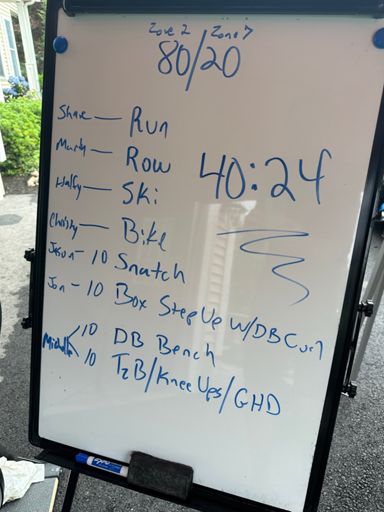 Zone 2 Zone 7
80/20
Shane — Run
Mandy — Row
40:24
Halfy — Ski
Christy — Bike
Jason - 10 Snatch
Jon - 10 Box Step Up W/DB Curl
10 DB Bench
10 T2B/Knee Ups/GHD
expo